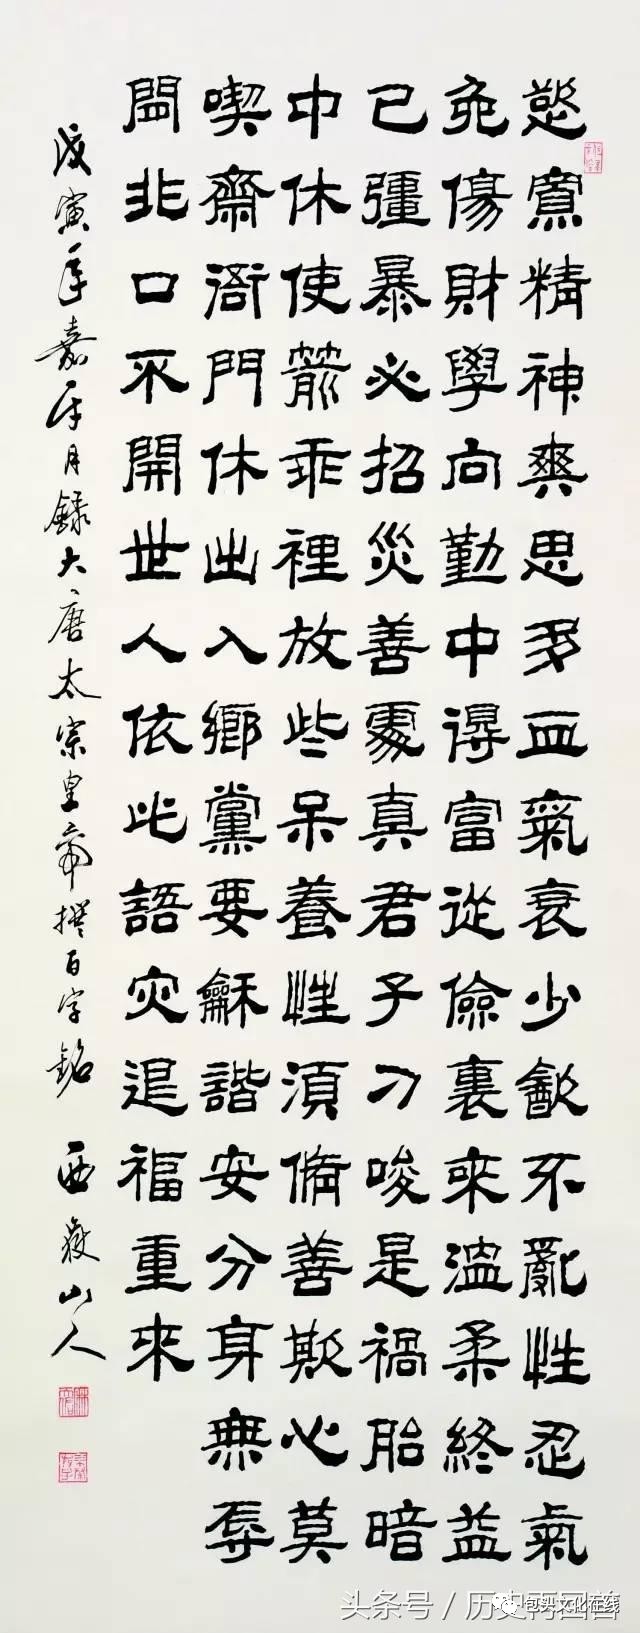 慾寡精神爽思多血氣衰少飲不亂性忍氣
免傷財學向勤中得富從儉裏來溫柔終益
己彊暴必招災善處真君子刁唆是禍胎暗
中休使箭乖裡放些呆養性須脩善欺心莫
喫齋衙門休出入鄉黨要龢諧安分身無辱
閒非口不開世人依此語灾退福重來
戊寅年嘉平月録大唐太宗皇帝撰百字銘 西嶽山人
头条号 / 历史再回首
包头文化在线